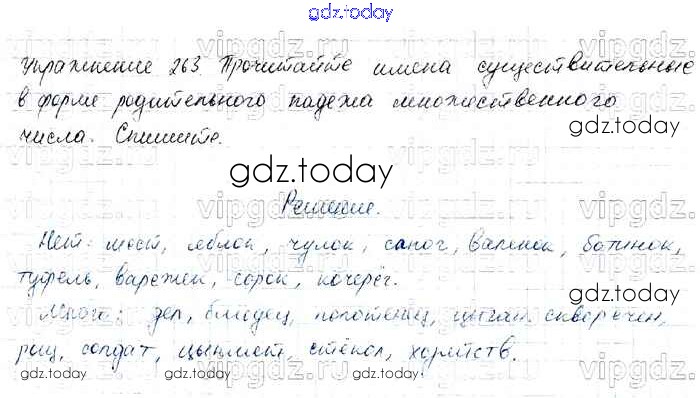 gdz.today
Упражнение 263. Прочитайте имена существительные
в форме родительного падежа множественного
числа. Спишите.
gdz.today
gdz.today
Решение.
Нет: мест, яблок, чулок, сапог, валенок, ботинок,
туфель, варежек, сорок, кочерёг.
gdz.today
Много: дел, блюдец, полотенец, цыган, скворечен,
риц, солдат, цыплят, стёкол, хозяйств.
gdz.today